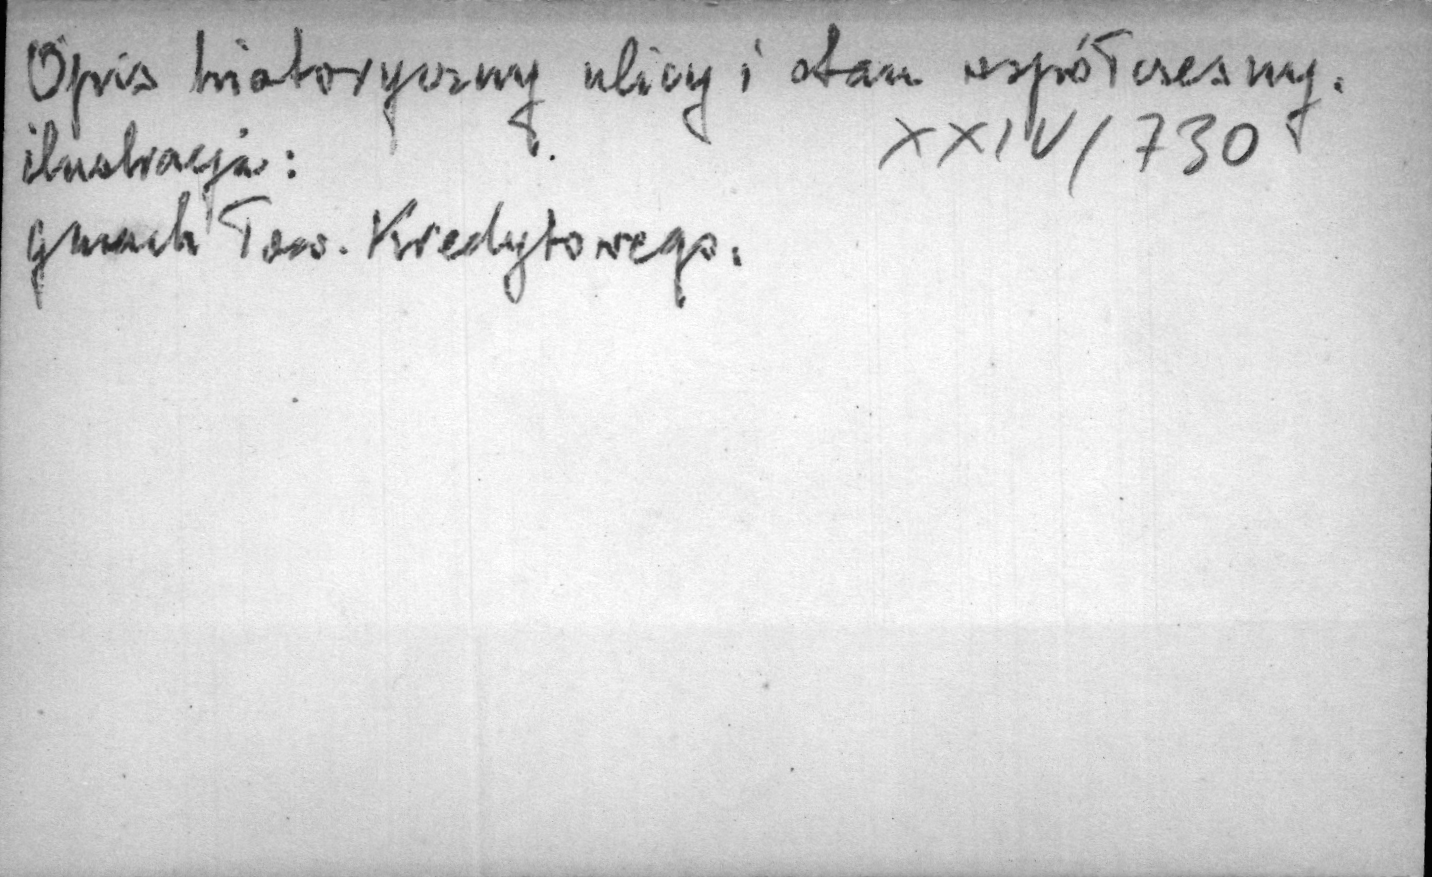 Opis historyczny ulicy i stan współczesny.
ilustracja: XXIV/730
gmach Tow. Kredytowego.